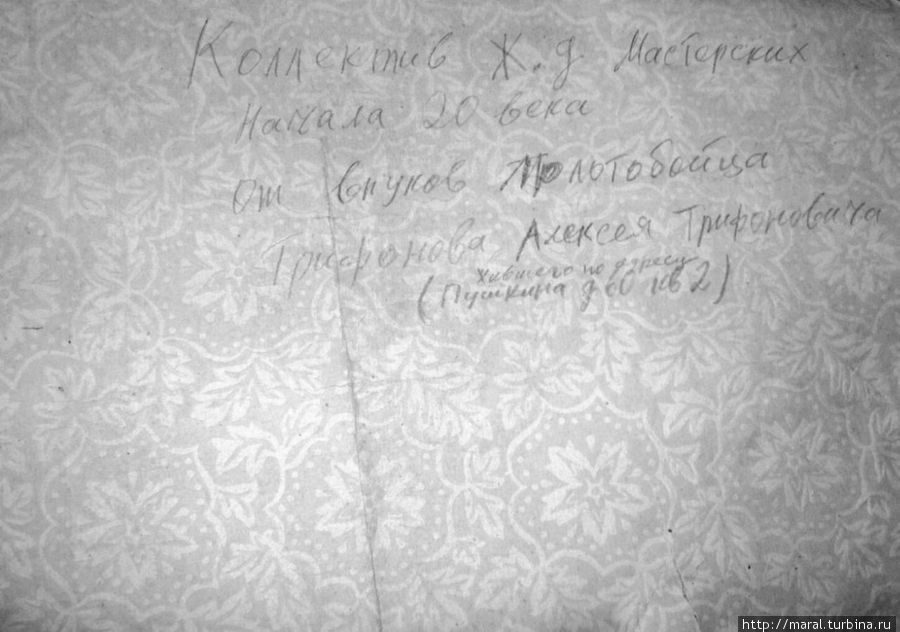 Коллектив Ж.д Мастерских
Начала 20 века
от внуков Молотобойца
Трифонова Алексея Трифоновича
Жившего по адресу
(Пушкина д кв 2)
http://maral.turbina.ru